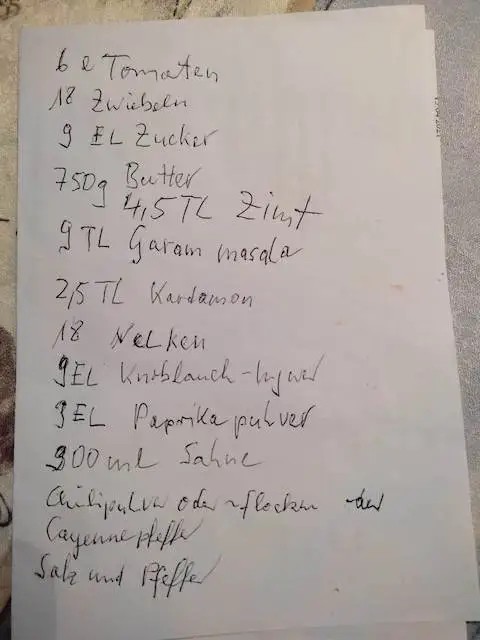 6 l Tomaten
18 Zwiebeln
9 EL Zucker
750g Butter
4,5 TL Zimt
9 TL Garam masala
2,5 TL Kardamon
18 Nelken
9EL Knoblauch-Ingwer
9EL Paprikapulver
900 ml Sahne
Chilipulver oder -flocken oder
Cayennepfeffer
Salz und Pfeffer